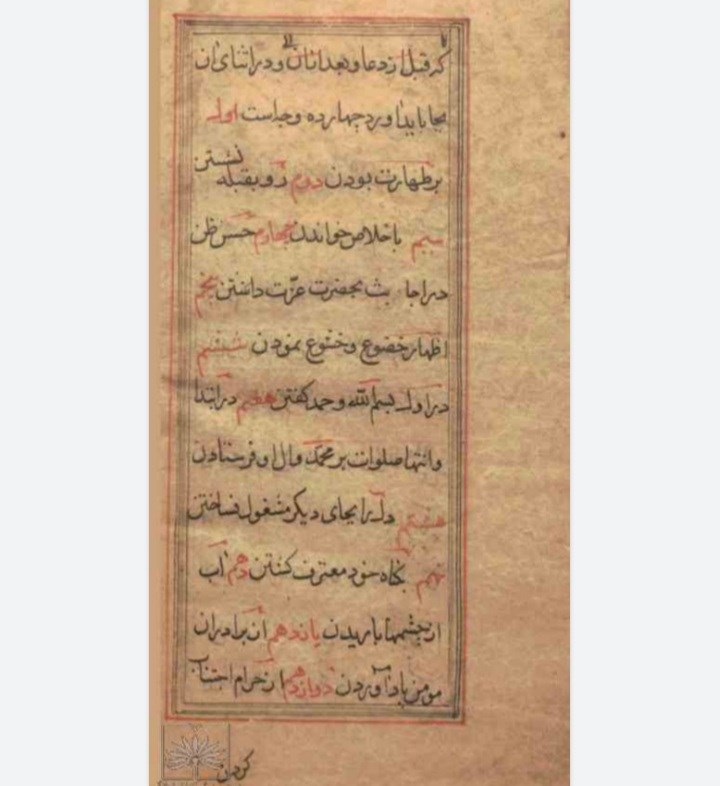 که قبل از دعا و بعد از آن و در اثنای آن
بجا باید آورد چهارده وجه است اول
بر طهارت بودن دوم رو بقبله نشستن
سیم باخلاص خواندن چهارم حسن ظن
در اجابت بحضرت عزّت داشتن پنجم
اظهار خضوع و خشوع نمودن ششم
در اول بسم الله و حمد گفتن هفتم در ابتدا
و انتها صلوات بر محمد و ال او فرستادن
هشتم دل را بجای دیگر مشغول نساختن
نهم بگناه خود معترف گشتن دهم آب
از چشمها باریدن یازدهم از برادران
مومن یاد آوردن دوازدهم از حرام اجتناب
کردن